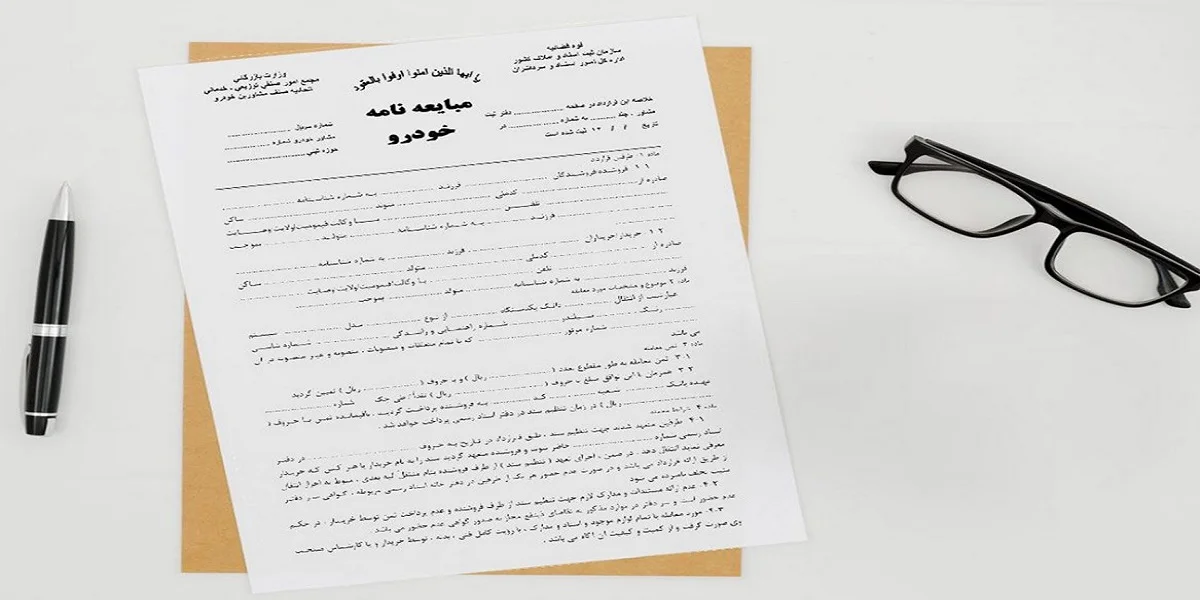 قوه قضائیه
سازمان ثبت اسناد و املاک کشور
اداره کل امور اسناد و سردفتران
یا ایها الذین امنوا اوفوا بالعقود
وزارت بازرگانی
مجمع امور صنفی توزیعی ـ خدماتی
اتحادیه صنف مشاورین خودرو
مبایعه نامه
خودرو
خلاصه این قرارداد در صفحه .......... دفتر ثبت
مشاور ـ جلد .......... به شماره .......... در
تاریخ / / ۱۳ ثبت شده است
شماره سریال ..........
مشاور خودرو شماره ..........
حوزه ثبتی ..........
ماده ۱: طرفین قرارداد
۱.۱ فروشنده/فروشندگان .......... فرزند .......... به شماره شناسنامه ..........
صادره از .......... کدملی .......... متولد .......... ساکن
.......... تلفن .......... با وکالت/قیمومیت/ولایت/وصایت
.......... فرزند .......... به شماره شناسنامه .......... متولد .......... بموجب
۱.۲ خریدار/خریداران .......... فرزند .......... به شماره شناسنامه ..........
صادره از .......... کدملی .......... متولد .......... ساکن
.......... تلفن .......... با وکالت/قیمومیت/ولایت/وصایت
فرزند .......... به شماره شناسنامه .......... متولد .......... بموجب
ماده ۲: موضوع و مشخصات مورد معامله
عبارتست از انتقال .......... دانگ یکدستگاه .......... از نوع .......... مدل .......... سیستم
.......... رنگ .......... سیلندر .......... شماره راهنمایی و رانندگی .......... شماره شاسی
.......... شماره موتور .......... که با تمام متعلقات و منصوبات
می باشد
ماده ۳: ثمن معامله
۳.۱ ثمن معامله به طور مقطوع بعدد ( .......... ریال ) و به حروف ( .......... ریال ) تعیین گردید
۳.۲ همزمان با این توافق مبلغ به حروف ( .......... ریال ) نقداً / طی چک .......... شماره
عهده بانک .......... شعبه .......... کد .......... به فروشنده پرداخت گردید . باقیمانده ثمن به حروف (
.......... ریال ) در زمان تنظیم سند در دفتر اسناد رسمی پرداخت خواهد شد .
ماده ۴: شرایط معامله
۴.۱ طرفین متعهد شدند جهت تنظیم سند ، طبق قرارداد در تاریخ به حروف .......... در دفتر
اسناد رسمی شماره .......... حاضر شوند و فروشنده متعهد گردید سند را به نام خریدار یا هر کس که خریدار
معرفی نماید انتقال دهد . در ضمن ، اجرای تعهد ( تنظیم سند ) از طرف فروشنده بنام منتقل الیه بعدی ، منوط به احراز انتقال
از طریق ارائه قرارداد می باشد و در صورت عدم حضور هر یک از طرفین در دفتر خانه اسناد رسمی مربوطه ، گواهی سردفتر
مثبت تخلف نامبرده می شود
۴.۲ عدم ارائه مستندات و مدارک لازم جهت تنظیم سند از طرف فروشنده و عدم پرداخت ثمن توسط خریدار ، در حکم
عدم حضور است و سر دفتر در موارد مذکور به تقاضای ذینفع مجاز به صدور گواهی عدم حضور می باشد .
مورد معامله با تمام لوازم موجود و اسناد و مدارک ، با رویت کامل فنی ، بدنه ، توسط خریدار و یا کارشناس منتخب
وی صورت گرفت و از کمیت و کیفیت آن آگاه می باشد .